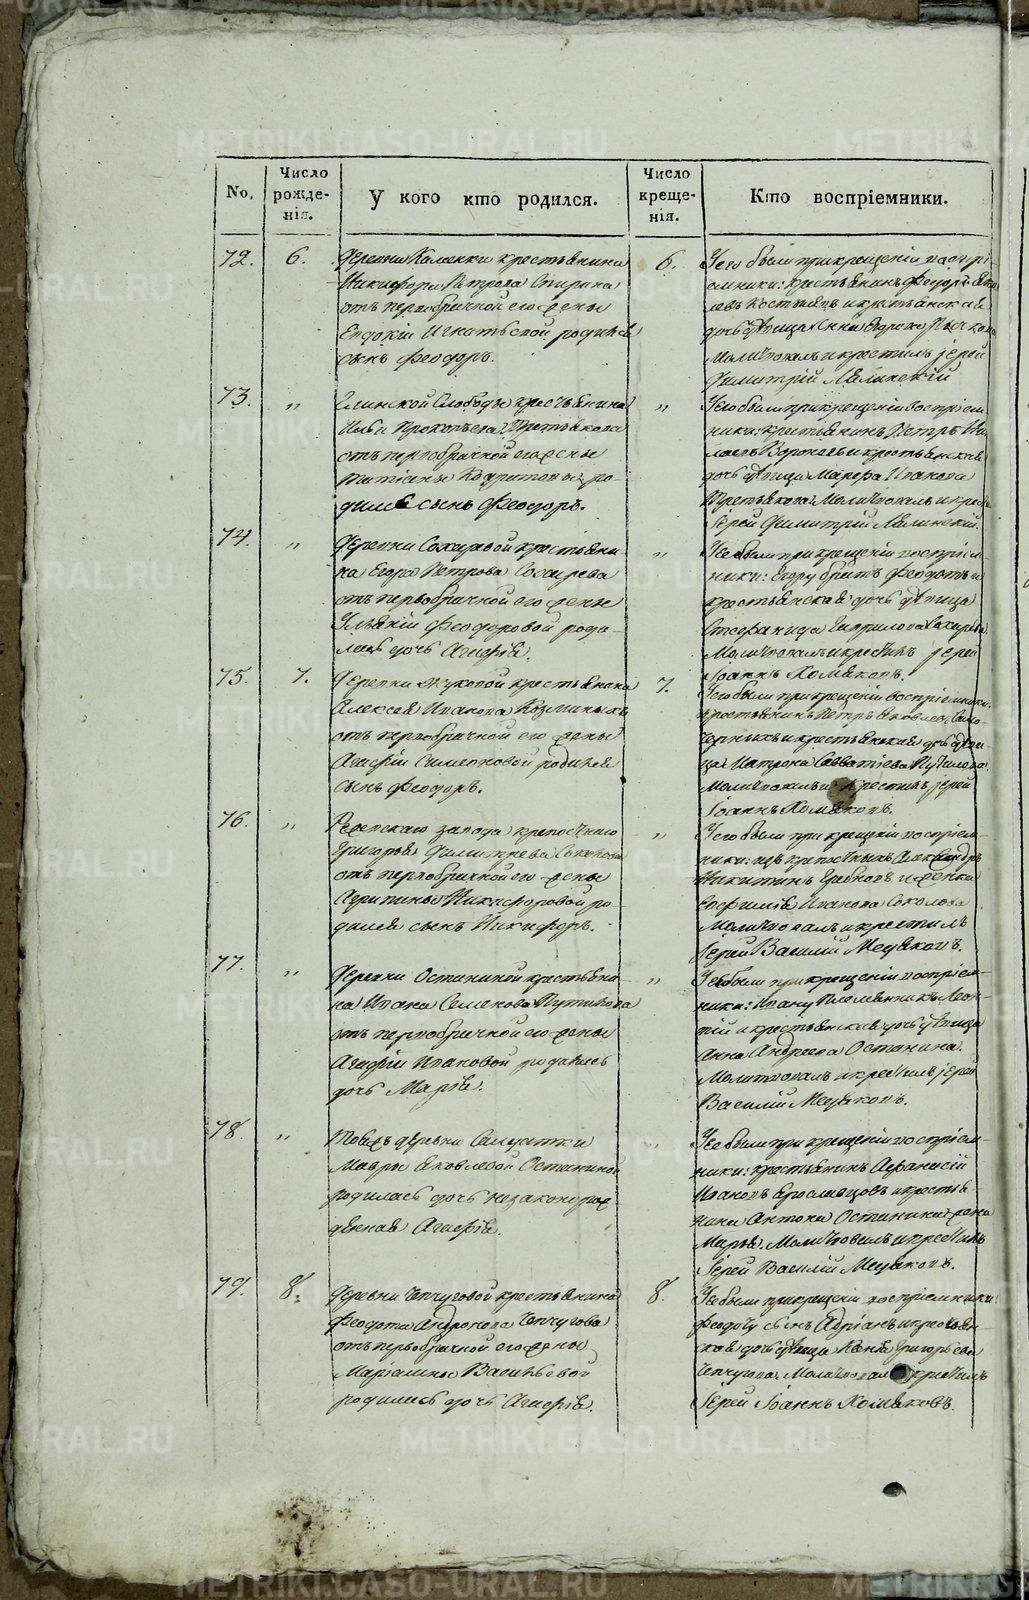 No.
Число рожде-
нія.
У кого кто родился.
Число креще-
нія.
Кто воспріемники.
72.
6.
Деревни Каменки крестьянина
Никифора Петрова Спирина
отъ первобрачной его жены
Евдокіи Игнатьевой родился
сынъ Феодоръ.
6.
У его были при крещеніи воспрі-
емники: крестьянинъ Феодоръ
и крестьянская
дочь дѣвица Анна
Молитвовалъ и крестилъ іерей
Димитрій
73.
„
Глинской Слободы крестьянина
Прокопьева Третьякова
отъ первобрачной его жены
Татіаны ро-
дился сынъ Феодоръ.
„
У его были при крещеніи воспріем-
ники: крестьянинъ Петръ
и крестьянская
дочь дѣвица Марфа Иванова
Третьякова. Молитвовалъ и крест.
Іерей Димитрій
74.
„
Деревни Сохаревой крестьяни-
на Егора Петрова Сохарева
отъ первобрачной его жены
Ульяніи Феодоровой роди-
лась дочь Агафія.
„
У ее были при крещеніи воспріем-
ники: Егору братъ Феодотъ и
крестьянская дочь дѣвица
Стефанида Гаврилова Сохарева.
Молитвовалъ и крестилъ іерей
Іоаннъ Хомяковъ.
75.
7.
Деревни Жуковой крестьянина
Алексея Иванова Козминыхъ
отъ первобрачной его жены
Агафіи Симеоновой родился
сынъ Феодоръ.
7.
У его были при крещеніи воспріемники:
крестьянинъ Петръ Яковлевъ
и крестьянская дочь дѣви-
ца Матрона Савватіева
Молитвовалъ и крестилъ іерей
Іоаннъ Хомяковъ.
76.
„
Режевскаго завода крепостнаго
Григорья Димитріева Соколова
отъ первобрачной его жены
Акрипины Никифоровой ро-
дился сынъ Никифоръ.
„
У его были при крещеніи воспріем-
ники: изъ крепостныхъ Александръ
Никитинъ и женка
Евфимія Иванова Соколова
Молитвовалъ и крестилъ
Іерей Василій Медяковъ.
77.
„
Деревни Останиной крестьяни-
на Ивана Семенова Путилова
отъ первобрачной его жены
Агафіи Ивановой родилась
дочь Марія.
„
У ее были при крещеніи воспріем-
ники: Ивану племянникъ Леон-
тій и крестьянская дочь дѣвица
Анна Андреева Останина.
Молитвовалъ и крестилъ іерей
Василій Медяковъ.
78.
„
Тожъ деревни Солдатки
Мавры Яковлевой Останиной
родилась дочь незаконорож-
денная Агафія.
„
У ее были при крещеніи воспріем-
ники: крестьянинъ Афанасій
Ивановъ Ярославцовъ и крестья-
нина Антона Останина жена
Марья. Молитвовалъ и крестилъ
Іерей Василій Медяковъ.
79.
8.
Деревни Чепчуговой крестьянина
Феодота Андронова Чепчугова
отъ первобрачной его жены
Маріамны Васильевой
родилась дочь Агафія.
8.
У ее были при крещеніи воспріемники:
Феодоту сынъ Адріанъ и крестьян-
ская дочь дѣвица Ксенія Григорьева
Чепчугова. Молитвовалъ и крестилъ
Іерей Іоаннъ Хомяковъ.
METRIKI.GASO-URAL.RU